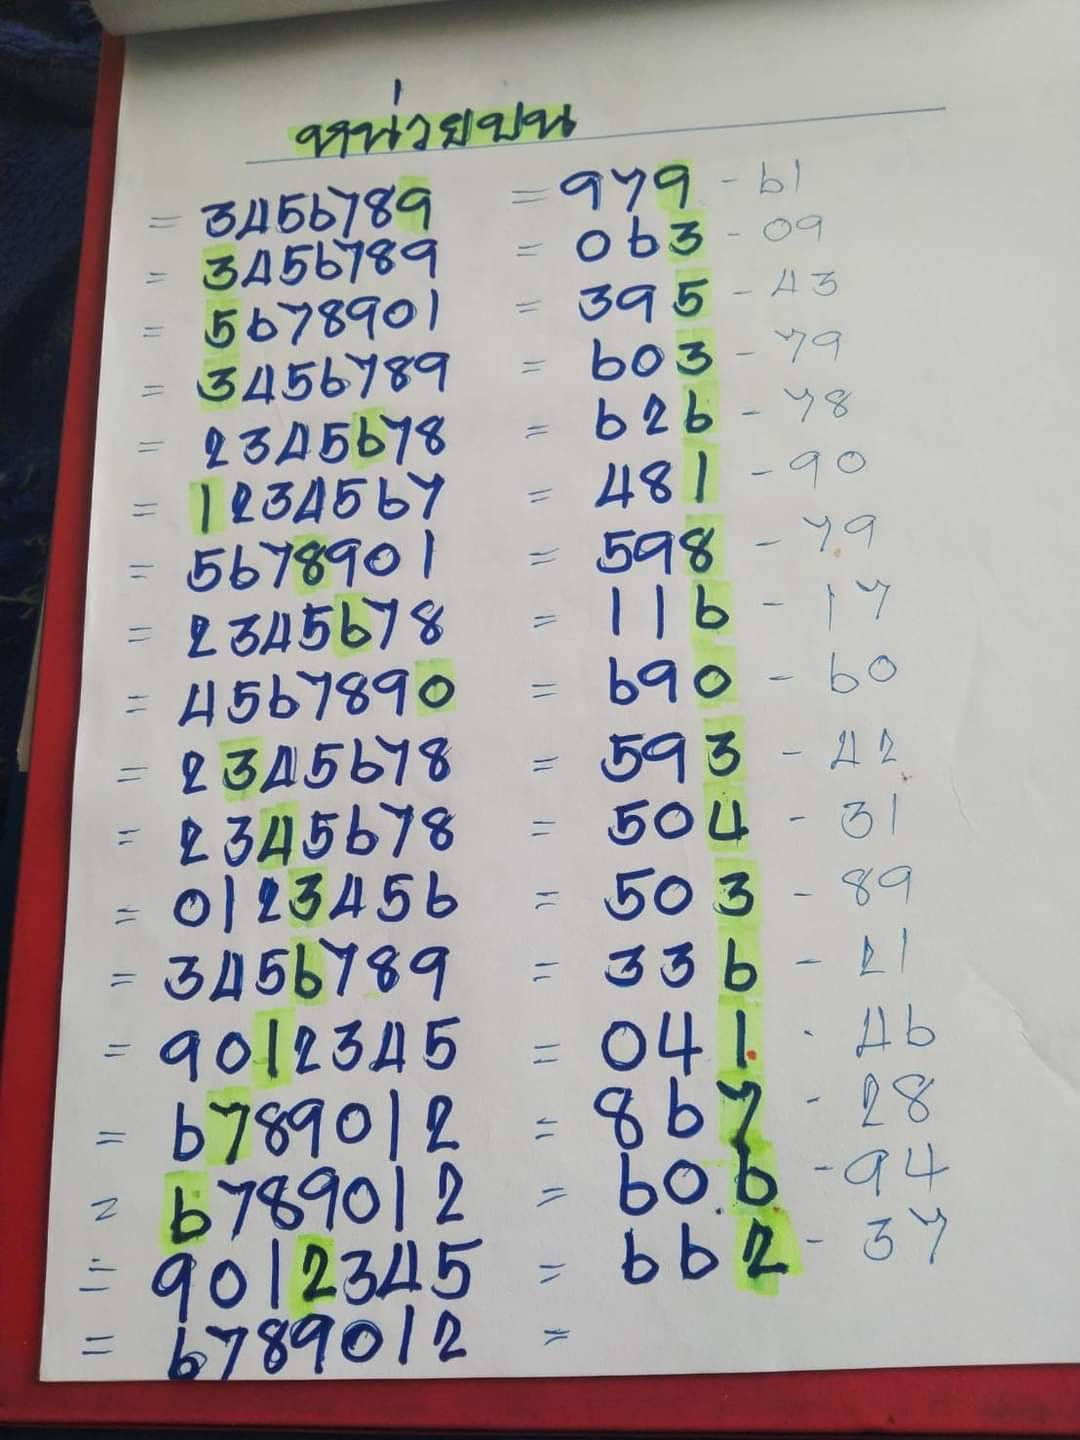 หน่วยบน
= 3456789 = 979 - 61
= 3456789 = 063 - 09
= 5678901 = 395 - 43
= 3456789 = 603 - 79
= 2345678 = 626 - 78
= 1234567 = 481 - 90
= 5678901 = 598 - 79
= 2345678 = 116 - 17
= 4567890 = 690 - 60
= 2345678 = 593 - 42
= 2345678 = 504 - 31
= 0123456 = 503 - 89
= 3456789 = 336 - 21
= 9012345 = 041 - 46
= 6789012 = 867 - 28
= 6789012 = 606 - 94
= 9012345 = 662 - 37
= 6789012 =